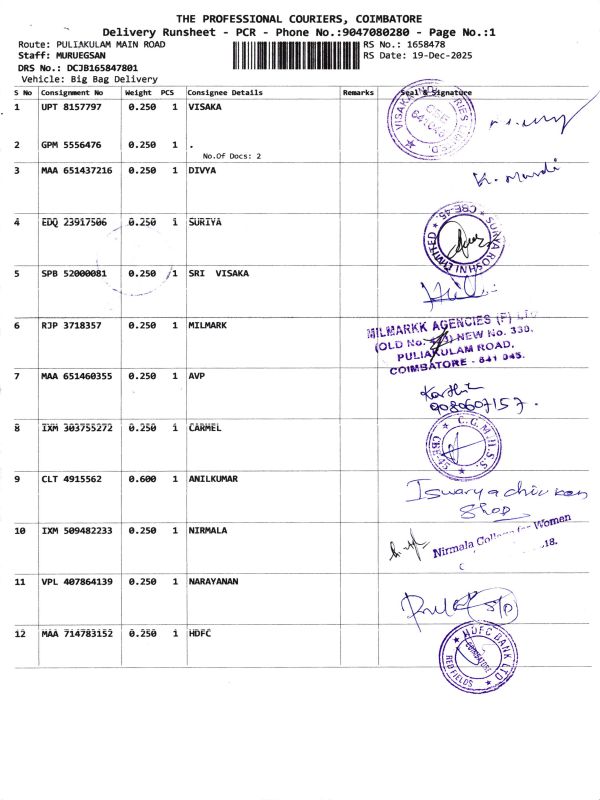 THE PROFESSIONAL COURIERS, COIMBATORE
Delivery Runsheet - PCR - Phone No.:9047080280 - Page No.:1
Route: PULIAKULAM MAIN ROAD RS No.: 1658478
Staff: MURUEGSAN RS Date: 19-Dec-2025
DRS No.: DCJB165847801
Vehicle: Big Bag Delivery
S No Consignment No Weight PCS Consignee Details Remarks Seal & Signature
1 UPT 8157797 0.250 1 VISAKA
2 GPM 5556476 0.250 1 .
No.Of Docs: 2
3 MAA 651437216 0.250 1 DIVYA
4 EDQ 23917506 0.250 1 SURIYA
SURYA ROSHNI LIMITED * CBE-45. *
5 SPB 52000081 0.250 1 SRI VISAKA
6 RJP 3718357 0.250 1 MILMARK
MILMARKK AGENCIES (P) LTD
(OLD No. NEW No. 330,
PULIAKULAM ROAD,
COIMBATORE - 641 045.
7 MAA 651460355 0.250 1 AVP
Karthi
9080607157.
8 IXM 303755272 0.250 1 CARMEL
C.G.M.H.S.S. * CBE-45 *
9 CLT 4915562 0.600 1 ANILKUMAR
Iswarya chicken
Shop
10 IXM 509482233 0.250 1 NIRMALA
Nirmala College for Women
18.
11 VPL 407864139 0.250 1 NARAYANAN
S/O
12 MAA 714783152 0.250 1 HDFC
* HDFC BANK LTD * REDFIELDS
COIMBATORE